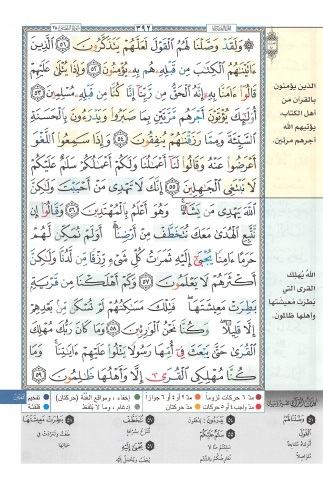 ٣٩٢
۞ وَلَقَدْ وَصَّلْنَا لَهُمُ ٱلْقَوْلَ لَعَلَّهُمْ يَتَذَكَّرُونَ ٥١ ٱلَّذِينَ
ءَاتَيْنَٰهُمُ ٱلْكِتَٰبَ مِن قَبْلِهِۦ هُم بِهِۦ يُؤْمِنُونَ ٥٢ وَإِذَا يُتْلَىٰ عَلَيْهِمْ
قَالُوٓا۟ ءَامَنَّا بِهِۦٓ إِنَّهُ ٱلْحَقُّ مِن رَّبِّنَآ إِنَّا كُنَّا مِن قَبْلِهِۦ مُسْلِمِينَ ٥٣
أُو۟لَٰٓئِكَ يُؤْتَوْنَ أَجْرَهُم مَّرَّتَيْنِ بِمَا صَبَرُوا۟ وَيَدْرَءُونَ بِٱلْحَسَنَةِ
ٱلسَّيِّئَةَ وَمِمَّا رَزَقْنَٰهُمْ يُنفِقُونَ ٥٤ وَإِذَا سَمِعُوا۟ ٱللَّغْوَ
أَعْرَضُوا۟ عَنْهُ وَقَالُوا۟ لَنَآ أَعْمَٰلُنَا وَلَكُمْ أَعْمَٰلُكُمْ سَلَٰمٌ عَلَيْكُمْ
لَا نَبْتَغِى ٱلْجَٰهِلِينَ ٥٥ إِنَّكَ لَا تَهْدِى مَنْ أَحْبَبْتَ وَلَٰكِنَّ
ٱللَّهَ يَهْدِى مَن يَشَآءُ وَهُوَ أَعْلَمُ بِٱلْمُهْتَدِينَ ٥٦ وَقَالُوٓا۟ إِن
نَّتَّبِعِ ٱلْهُدَىٰ مَعَكَ نُتَخَطَّفْ مِنْ أَرْضِنَآ أَوَلَمْ نُمَكِّن لَّهُمْ
حَرَمًا ءَامِنًا يُجْبَىٰٓ إِلَيْهِ ثَمَرَٰتُ كُلِّ شَىْءٍ رِّزْقًا مِّن لَّدُنَّا وَلَٰكِنَّ
أَكْثَرَهُمْ لَا يَعْلَمُونَ ٥٧ وَكَمْ أَهْلَكْنَا مِن قَرْيَةٍۭ
بَطِرَتْ مَعِيشَتَهَا فَتِلْكَ مَسَٰكِنُهُمْ لَمْ تُسْكَن مِّنۢ بَعْدِهِمْ
إِلَّا قَلِيلًا وَكُنَّا نَحْنُ ٱلْوَٰرِثِينَ ٥٨ وَمَا كَانَ رَبُّكَ مُهْلِكَ
ٱلْقُرَىٰ حَتَّىٰ يَبْعَثَ فِىٓ أُمِّهَا رَسُولًا يَتْلُوا۟ عَلَيْهِمْ ءَايَٰتِنَا وَمَا
كُنَّا مُهْلِكِى ٱلْقُرَىٰٓ إِلَّا وَأَهْلُهَا ظَٰلِمُونَ ٥٩
الذين يؤمنون
بالقرآن من
أهل الكتاب،
يؤتيهم الله
أجرهم مرتين.
الله يُهلك
القرى التي
بطرت معيشتها
وأهلها ظالمون.
مدّ ٦ حركات لزوماً مدّ ٢ أو ٤ أو ٦ جوازاً إخفاء، ومواقع الغُنَّة (حركتان) تفخيم
مدّ واجب ٤ أو ٥ حركات مدّ حركتان إدغام، وما لا يُلفَظ قلقلة
وَصَّلْنَا لَهُمُ
الْقَوْلَ
يَدْرَءُونَ: يدفعون
سَلَامٌ عَلَيْكُمْ
بَطِرَتْ مَعِيشَتَهَا